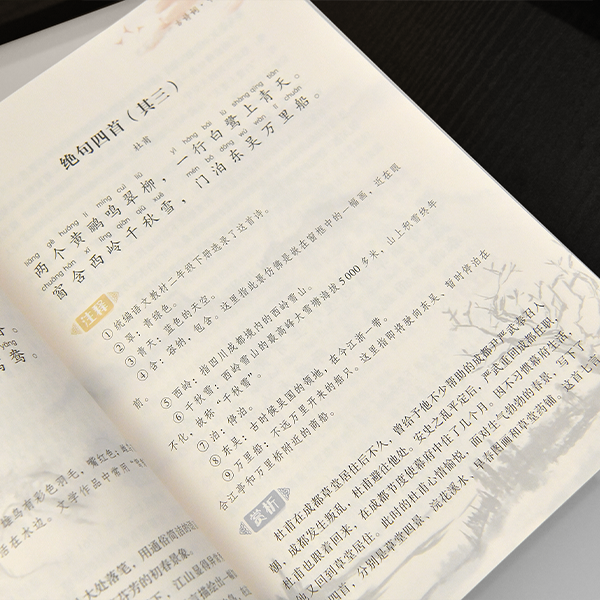 绝句四首（其三）
杜甫
liǎng gè huáng lí míng cuì liǔ yì háng bái lù shàng qīng tiān
两个黄鹂鸣翠柳，一行白鹭上青天。
chuāng hán xī lǐng qiān qiū xuě mén bó dōng wú wàn lǐ chuán
窗含西岭千秋雪，门泊东吴万里船。
注释
①统编语文教材二年级下册选录了这首诗。
②翠：青绿色。
③青天：蓝色的天空。
④含：容纳，包含。这里指此景仿佛是嵌在窗框中的一幅画，近在眼
前。
⑤西岭：指四川成都境内的西岭雪山。
⑥千秋雪：西岭雪山的最高峰大雪塘海拔5000多米，山上积雪终年
不化，故称“千秋雪”。
⑦泊：停泊。
⑧东吴：古时候吴国的领地，在今江浙一带。
⑨万里船：不远万里开来的船只。这里指即将驶向东吴、暂时停泊在
合江亭和万里桥附近的商船。
赏析
杜甫在成都草堂居住后不久，曾给予他不少帮助的成都尹严武奉召入
朝，成都发生叛乱，杜甫避往他处。安史之乱平定后，严武重回成都任职，
杜甫也跟着回来，在成都节度使幕府中住了几个月。因不习惯幕府生活，
他又回到草堂居住。此时的杜甫心情愉悦，面对生气勃勃的春景，写下了
四首，分别是草堂四景、浣花溪水、早春图画和草堂药圃。这首七言
雄鸟有彩色羽毛，嘴红色；
活在水边。文学作品中常用
大处落笔，用通俗简洁的
芬芳的初春景象。